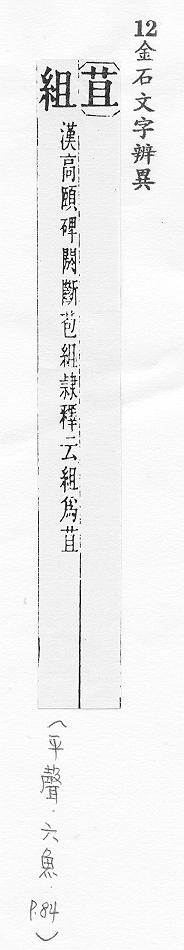 12金石文字辨異
苴
組 漢高頤碑闕斷苞組隸釋云組爲苴
(平聲.六魚.P.84)